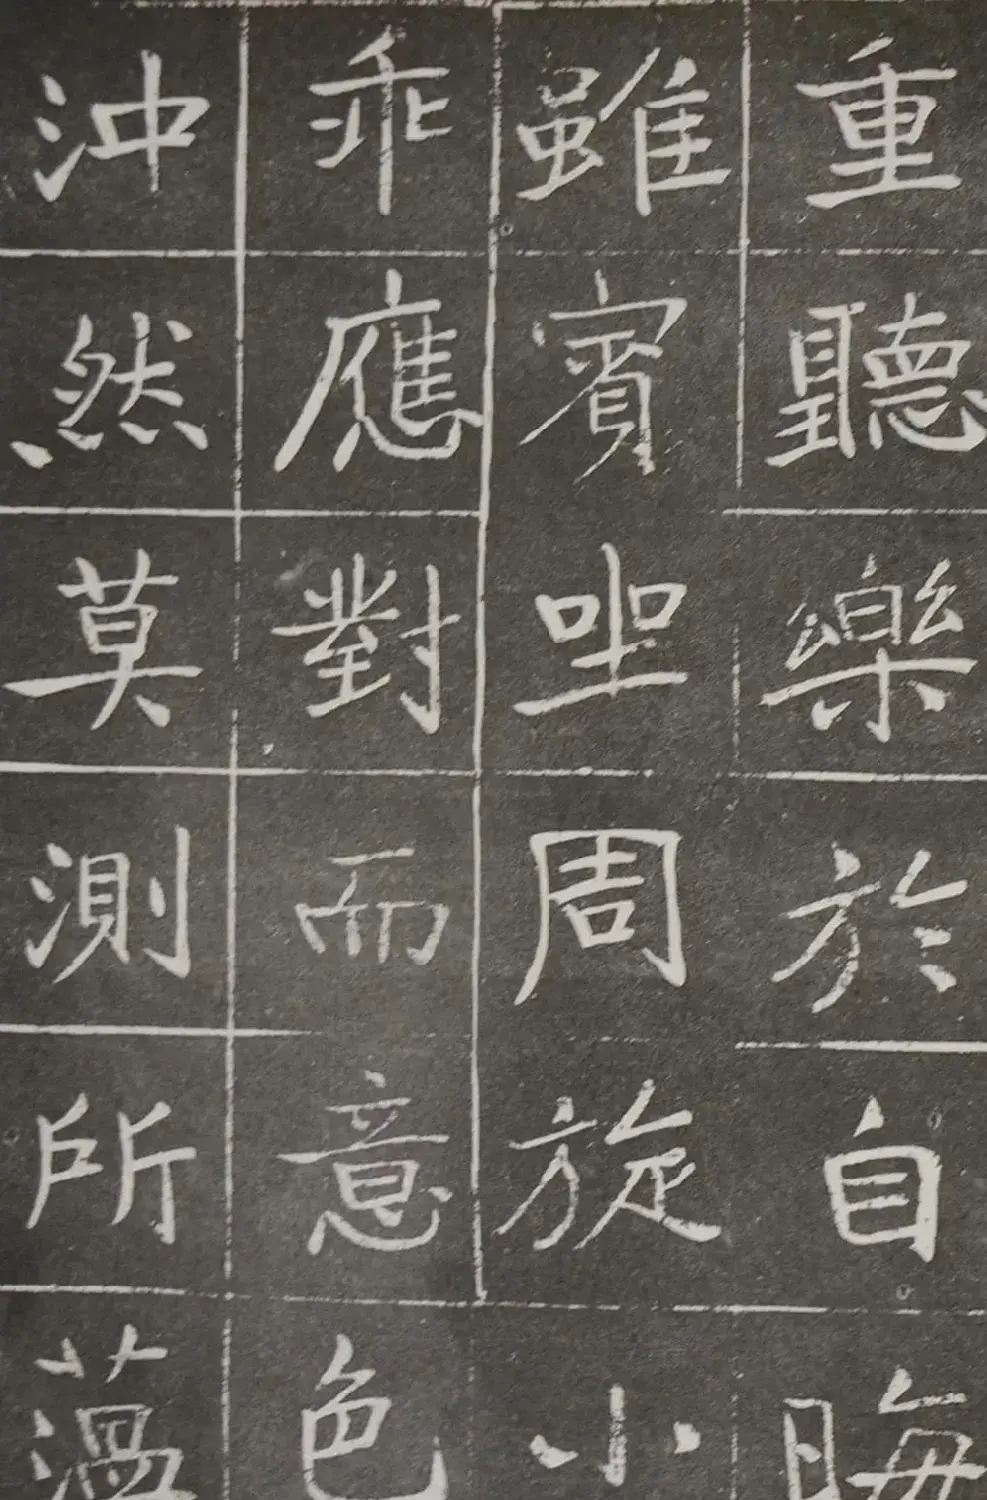 重聽樂於自晦
雖賓坐周旋小
乖應對而意色
沖然莫測所蕰